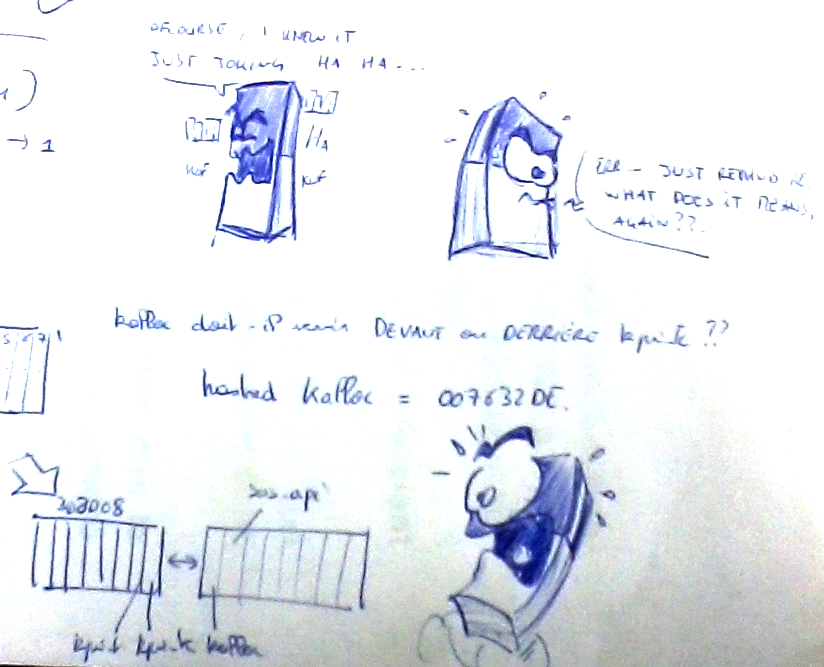 OFCOURSE, I KNEW IT
JUST JOKING HA HA...
HA
KUF
KUF
→ 1
ERR — JUST REMIND ME
WHAT DOES IT MEANS,
AGAIN??
kalloc doit-il venir DEVANT ou DERRIÈRE kprintk ??
5 6 7
hashed kalloc = 007632DE.
sos-api
kprintk kalloc